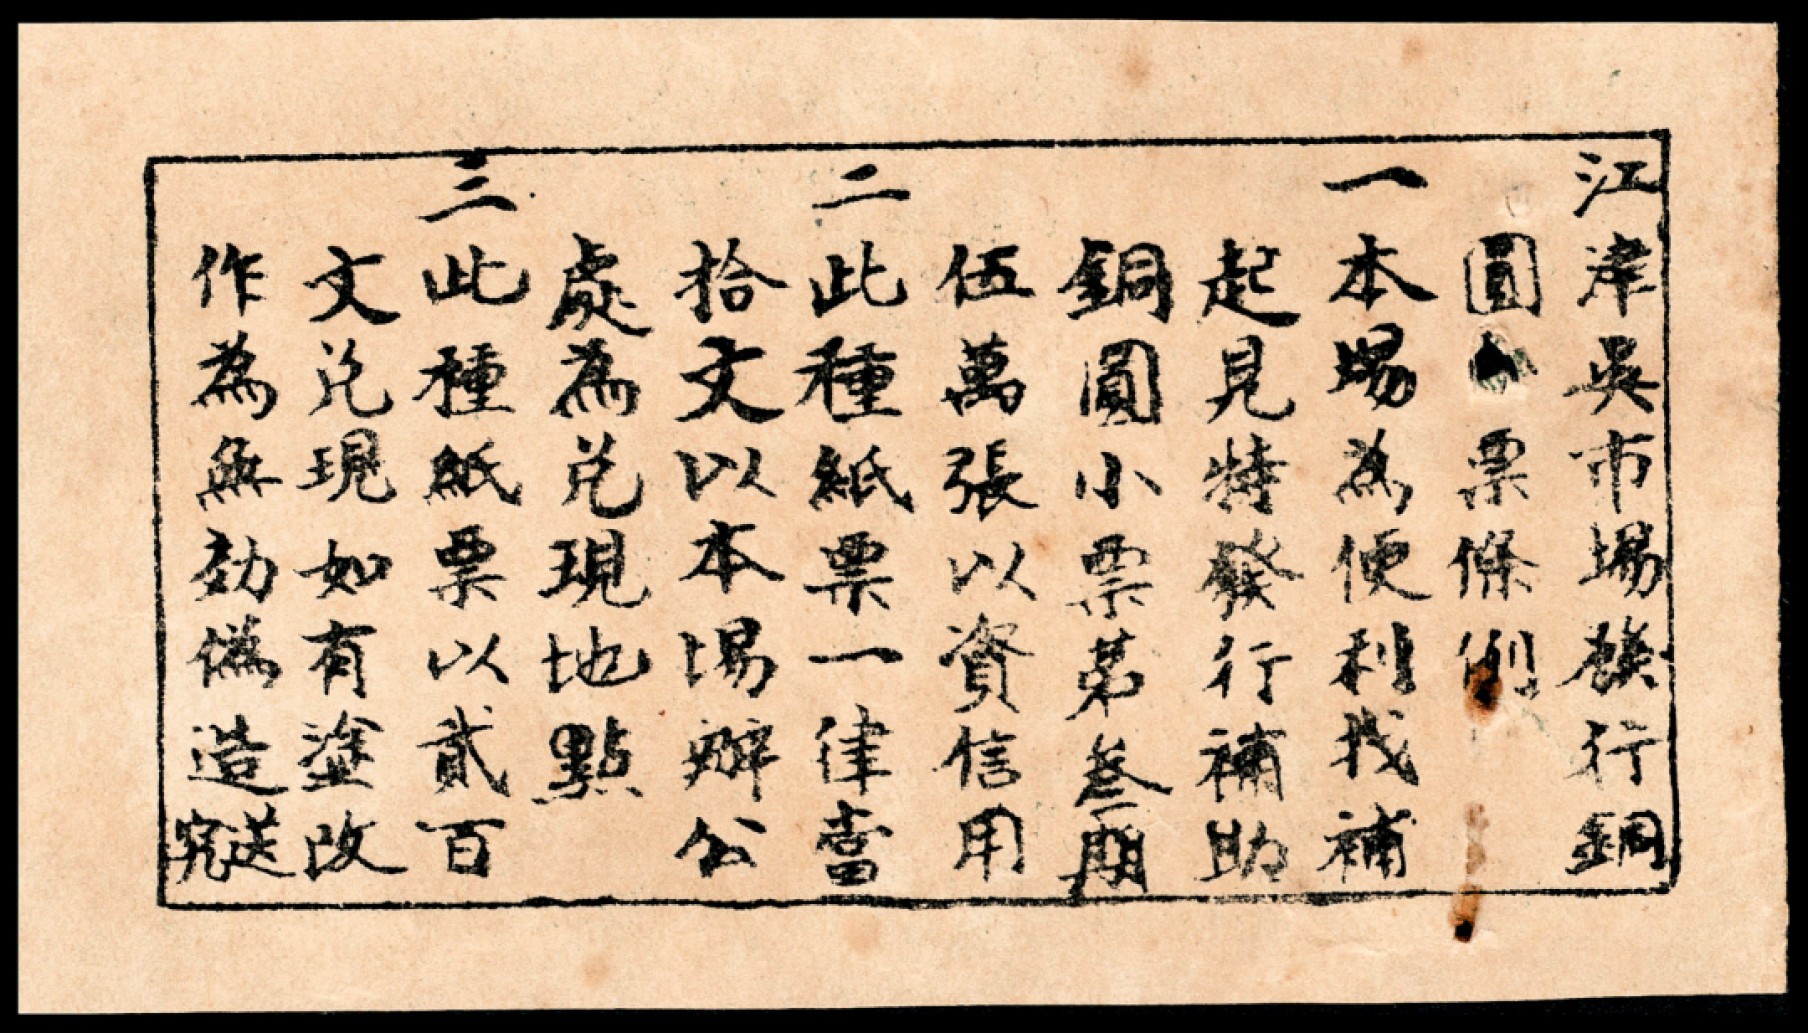 江津吳市場發行銅
圓小票條例
一 本場為便利找補
起見特發行補助
銅圓小票第叁期
伍萬張以資信用
二 此種紙票一律當
拾文以本場辦公
處為兑現地點
三 此種紙票以貳百
文兑現如有塗改
作為無効偽造送究